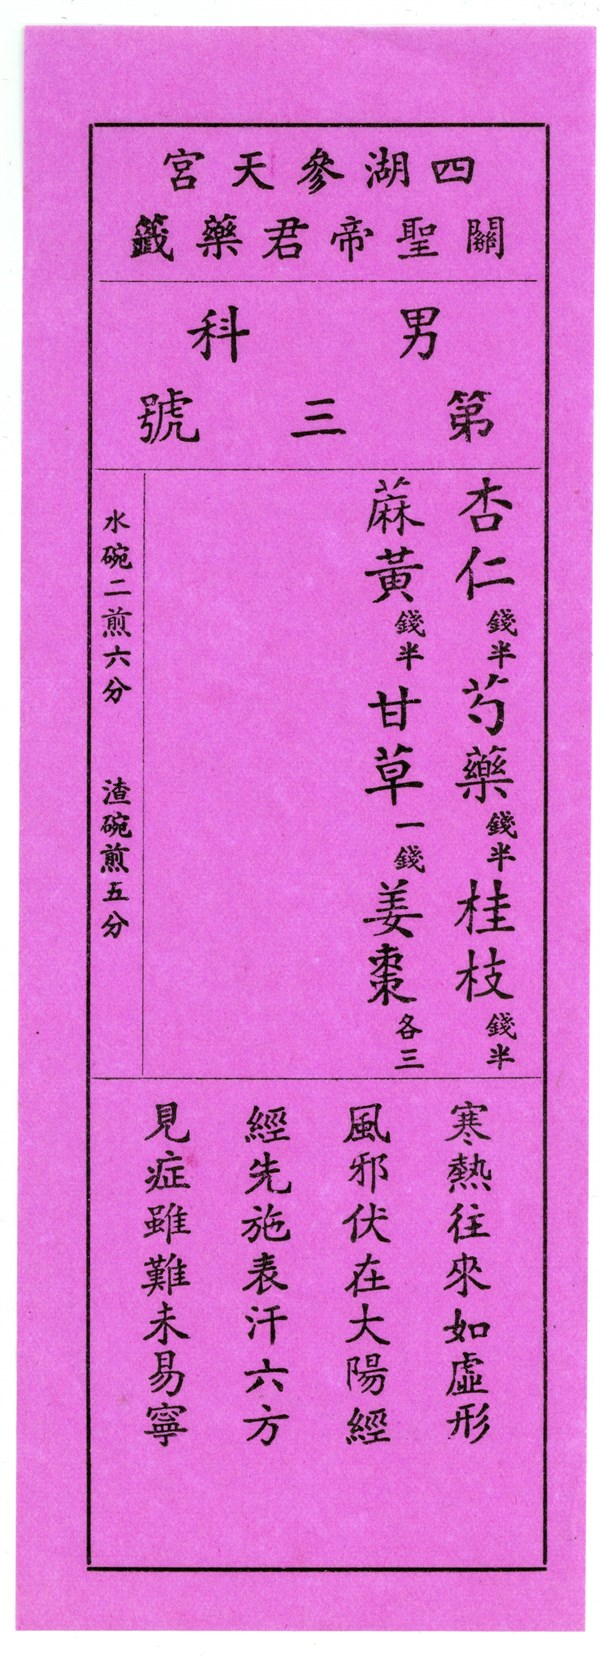 四湖參天宮
關聖帝君藥籤
男科
第三號
杏仁錢半芍藥錢半桂枝錢半
蔴黃錢半甘草一錢姜棗各三
水碗二煎六分 渣碗煎五分
寒熱往來如虛形
風邪伏在大陽經
經先施表汗六方
見症雖難未易寧